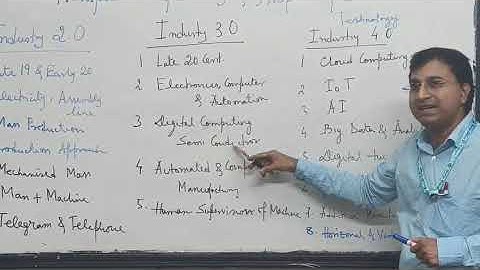 Technology
Industry 2.0
ate 19 & Early 20
lectricity, Assembly
line
Man Production
roduction Approach
Mechanised Man
Man + Machine
Telegram & Telephone
Industry 3.0
1 Late 20 Cent.
2 Electronics, Computer
& Automation
3 Digital Computing
Semi Conductor
4. Automated &
Manufacturing
5. Human Supervisor of Machine
Industry 4.0
1 Cloud Computing
2 IoT
3 AI
4 Big Data & Analy
5 Digital
7.
8. Horizonal &